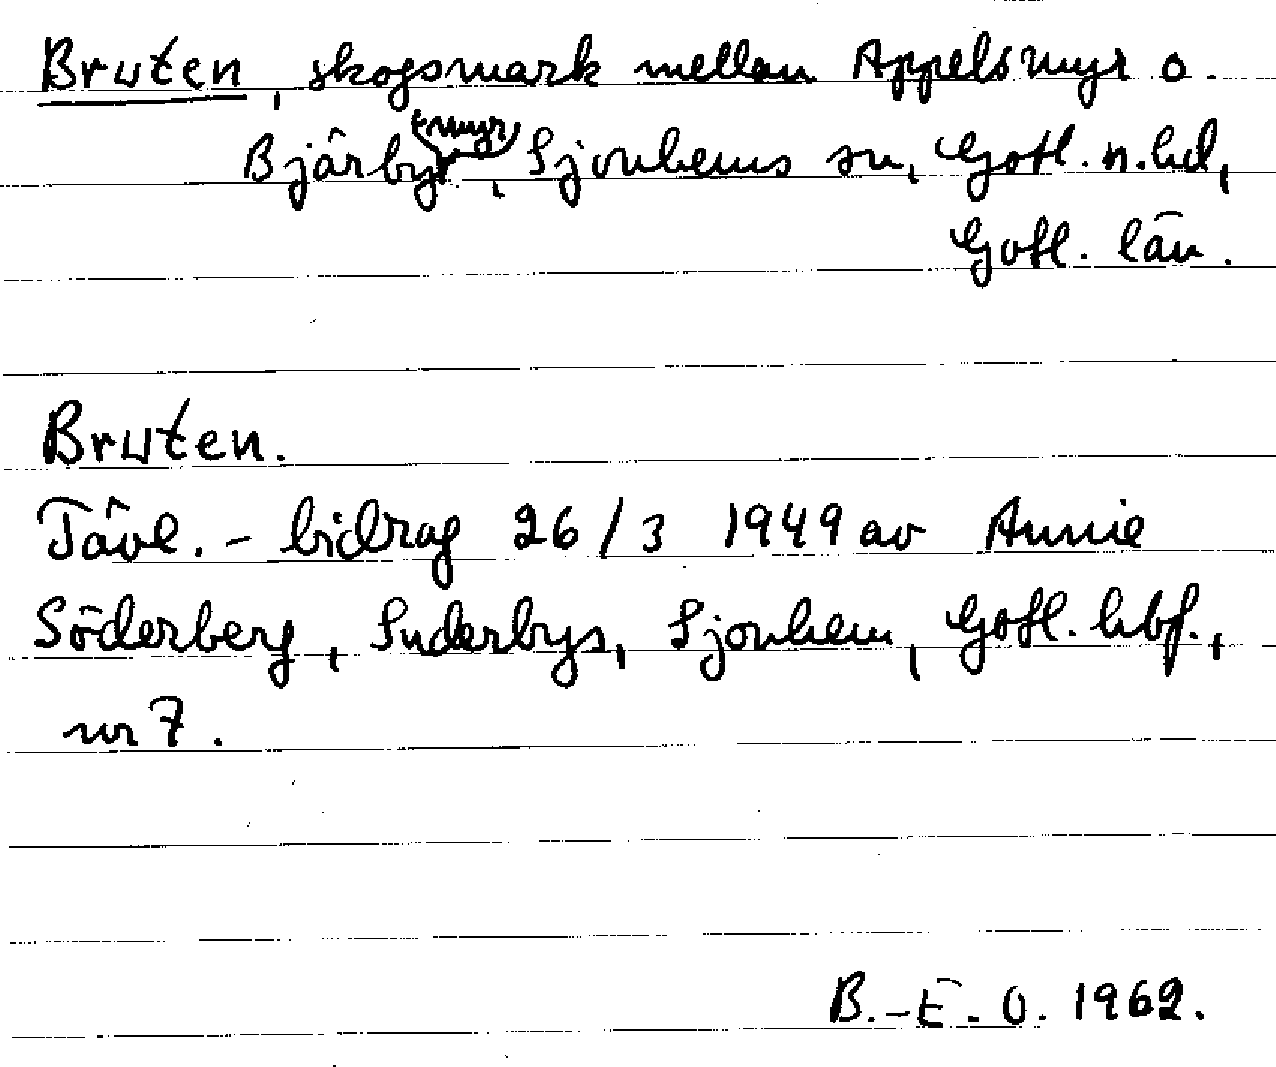 Bruten, skogsmark mellan Appelsmyr o.
Bjärby (myr), Sjonhems sn, Gotl. n. hd,
Gotl. län.
Bruten.
Tävl.- bidrag 26/3 1949 av Annie
Söderberg, Suderbys, Sjonhem, Gotl. hbf.,
nr 7.
B.-E. O. 1962.